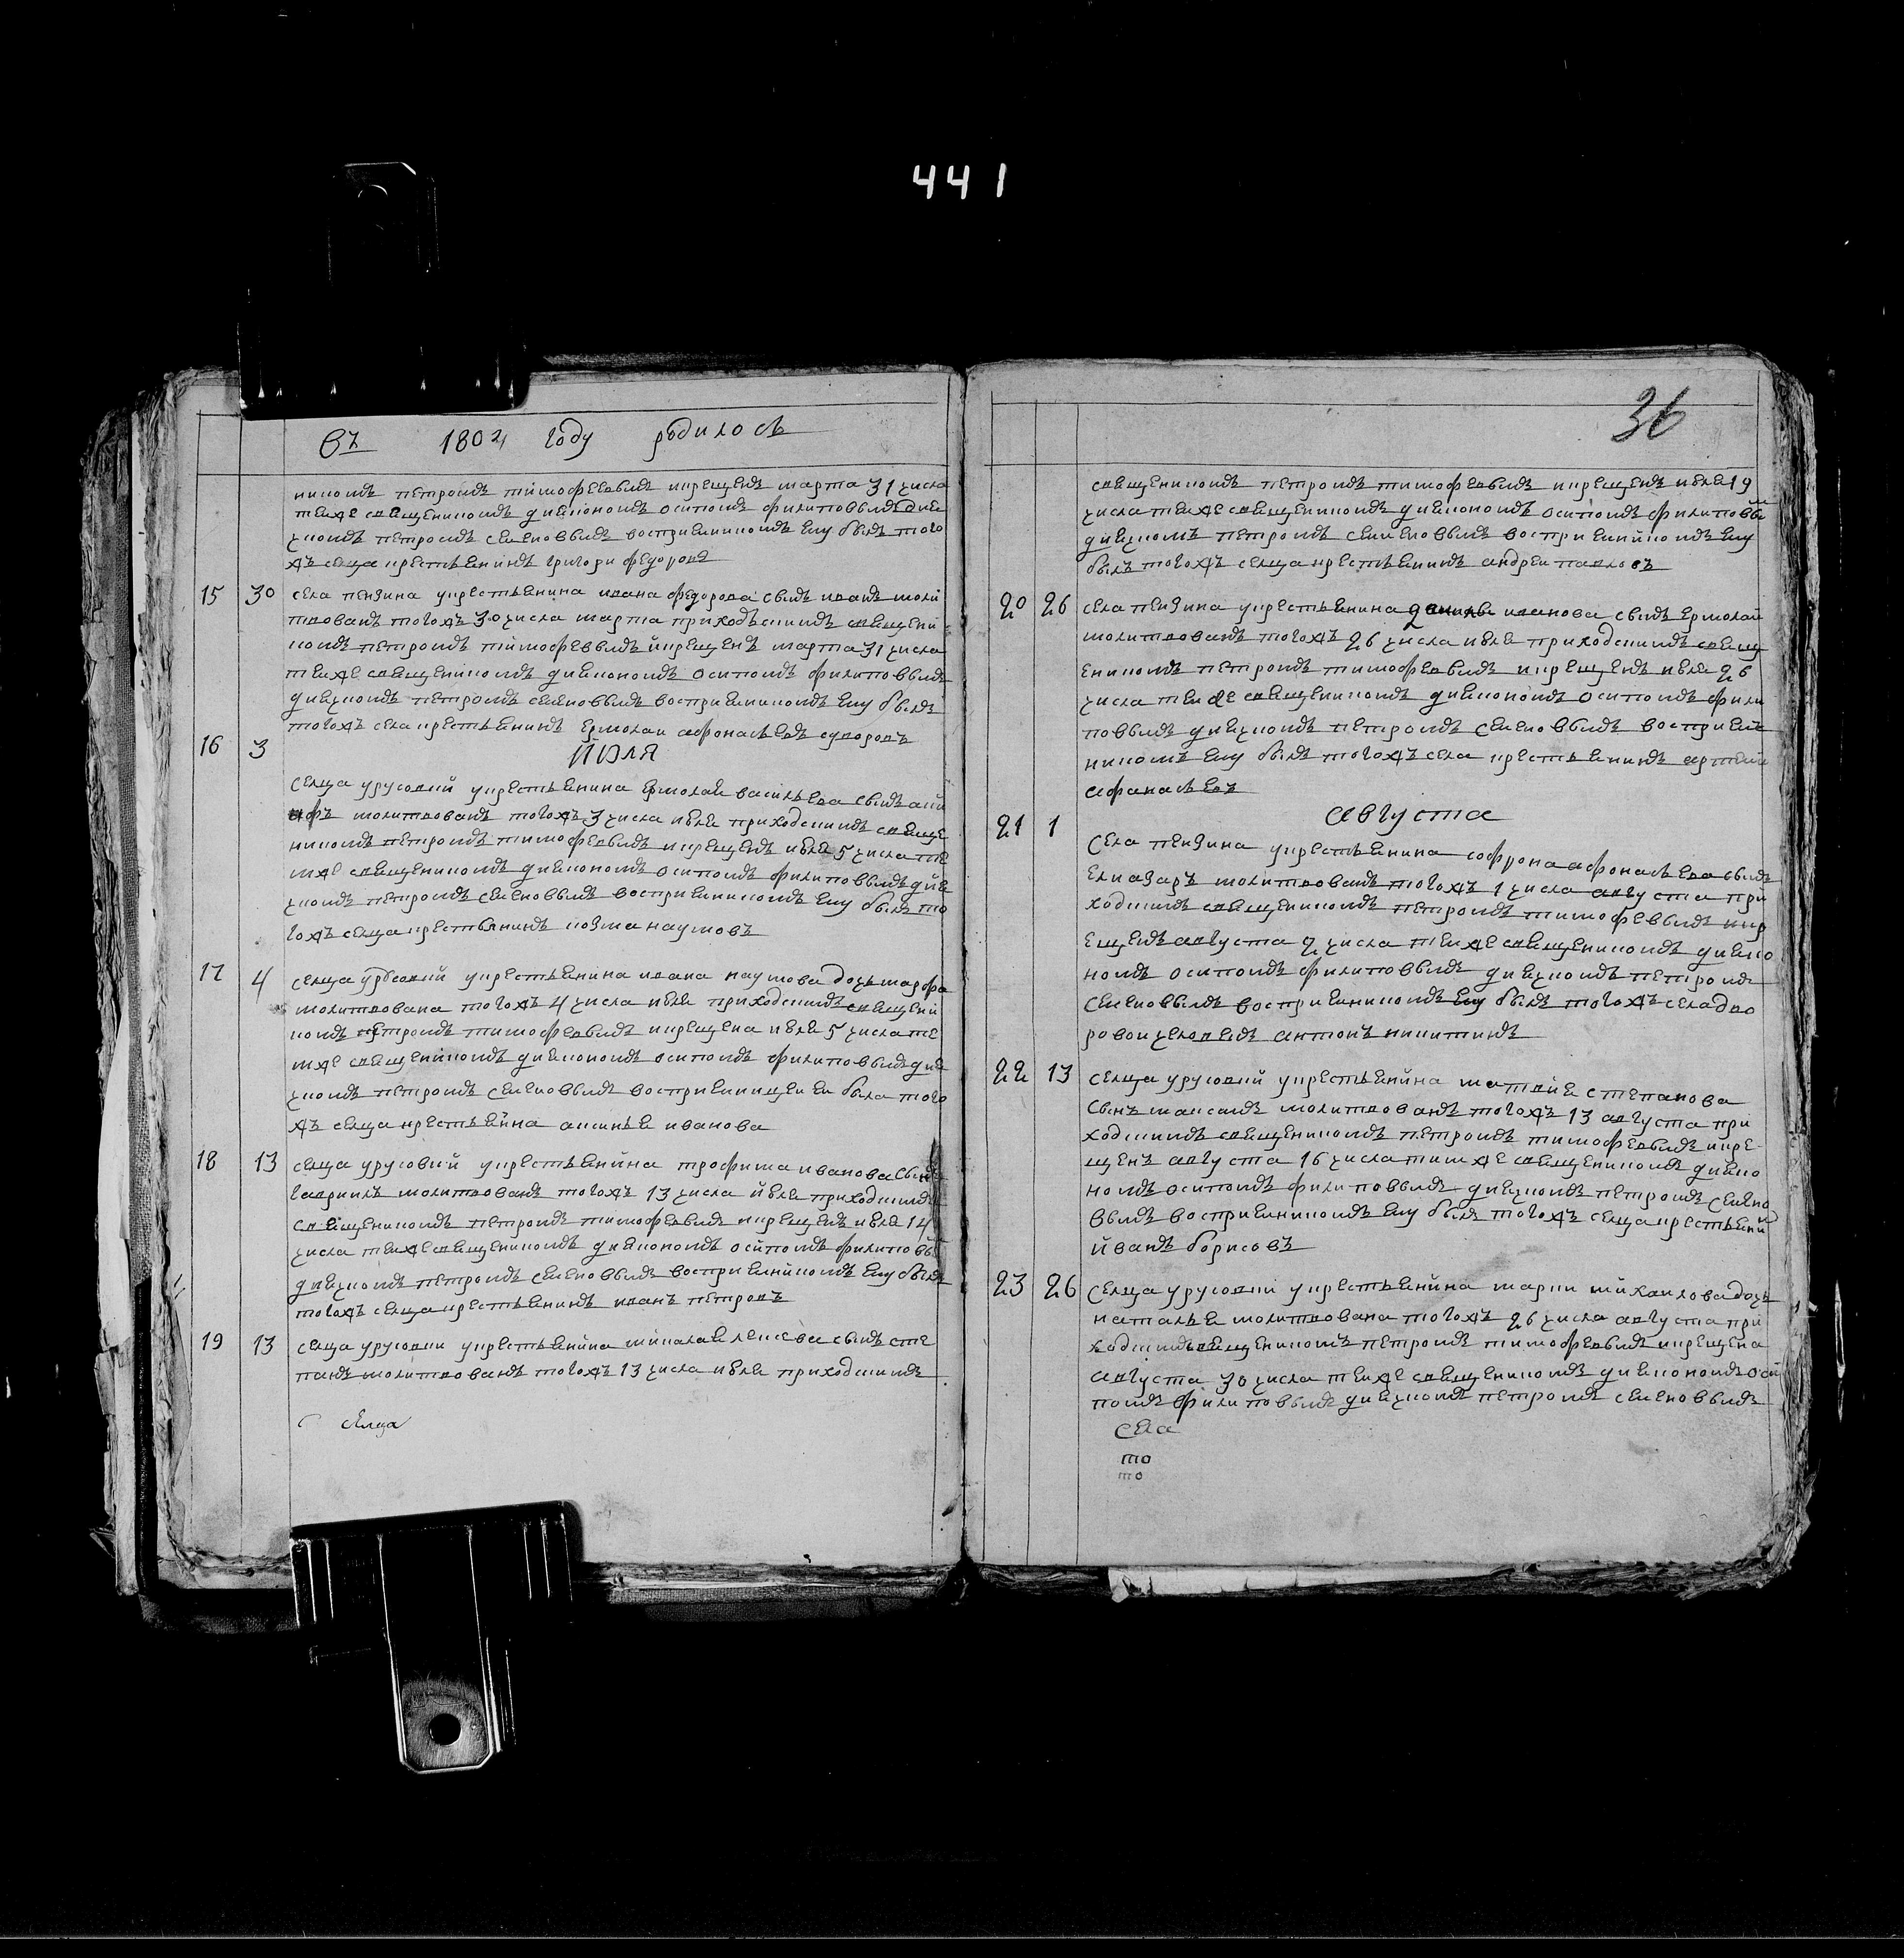 441
36
въ 1802 году родилось
никомъ петромъ тимофеевымъ икрещенъ марта 31 числа
темже священникомъ диякономъ осипомъ филиповымъ дия
чкомъ петромъ семеновымъ восприемникомъ ему былъ того
жъ селца крестьянинъ григори федоровъ
15 30 села пензина укрестьянина ивана федорова сынъ иванъ моли
твованъ тогожъ 30 числа марта приходскимъ священи
комъ петромъ тимофеевымъ икрещенъ марта 31 числа
темже священикомъ диякономъ осипомъ филиповымъ
диячкомъ петромъ семеновымъ восприемникомъ ему былъ
тогожъ села крестьянинъ ермолаи афонасьевъ суворовъ
16 3 ИЮЛЯ
селца урусовки укрестьянина ермолая васильева сынъ аки
нфъ молитвованъ тогожъ 3 числа июля приходскимъ свяще
никомъ петромъ тимофеевымъ икрещенъ июля 5 числа те
мже священикомъ диякономъ осипомъ филиповымъ дия
чкомъ петромъ семеновымъ восприемникомъ ему былъ то
гожъ селца крестьянинъ козма наумовъ
17 4 селца урусовки укрестьянина ивана наумова дочь марфа
молитвована тогожъ 4 числа июля приходскимъ священи
комъ петромъ тимофеевымъ икрещена июля 5 числа те
мже священикомъ диякономъ осипомъ филиповымъ дия
чкомъ петромъ семеновымъ восприемницеи еи была того
жъ селца крестьянина аксинья иванова
18 13 селца урусовки укрестьянина трофима иванова сынъ
гавриилъ молитвованъ тогожъ 13 числа июля приходскимъ
священикомъ петромъ тимофеевымъ икрещенъ июля 14
числа темже священикомъ диякономъ осипомъ филиповы
диячкомъ петромъ семеновымъ восприемникомъ ему былъ
тогожъ селца крестьянинъ иванъ петровъ
19 13 селца урусовки укрестьянина николая сынъ сте
панъ молитвованъ тогожъ 13 числа июля приходскимъ
селца
священикомъ петромъ тимофеевымъ икрещенъ июля 19
числа темже священикомъ диякономъ осипомъ филиповы
диячкомъ петромъ семеновымъ восприемникомъ ему
былъ тогожъ селца крестьянинъ андреи павловъ
20 26 села пензина укрестьянина иванова сынъ ермолаи
молитвованъ тогожъ 26 числа июля приходскимъ свящ
еникомъ петромъ тимофеевымъ икрещенъ июля 26
числа темже священикомъ диякономъ осипомъ фили
повымъ диячкомъ петромъ семеновымъ восприем
никомъ ему былъ тогожъ села крестьянинъ артемии
афанасьевъ
августа
21 1 села пензина укрестьянина софрона афонасьева сынъ
елиазаръ молитвованъ тогожъ 1 числа августа при
ходскимъ священикомъ петромъ тимофеевымъ икр
ещенъ августа 2 числа темже священикомъ дияко
номъ осипомъ филиповымъ диячкомъ петромъ
семеновымъ восприемникомъ ему былъ тогожъ села дво
ровои человекъ антонъ никитинъ
22 13 селца урусовки укрестьянина матвия степанова
сынъ максимъ молитвованъ тогожъ 13 августа при
ходскимъ священикомъ петромъ тимофеевымъ икре
щенъ августа 16 числа темже священикомъ дияко
номъ осипомъ филиповымъ диячкомъ петромъ семено
вымъ восприемникомъ ему былъ тогожъ селца крестьянин
иванъ борисовъ
23 26 селца урусовки укрестьянина марки михаилова дочь
наталья молитвована тогожъ 26 числа августа при
ходскимъ священикомъ петромъ тимофеевымъ икрещена
августа 30 числа темже священикомъ диякономъ оси
помъ филиповымъ диячкомъ петромъ семеновымъ
села
то
то